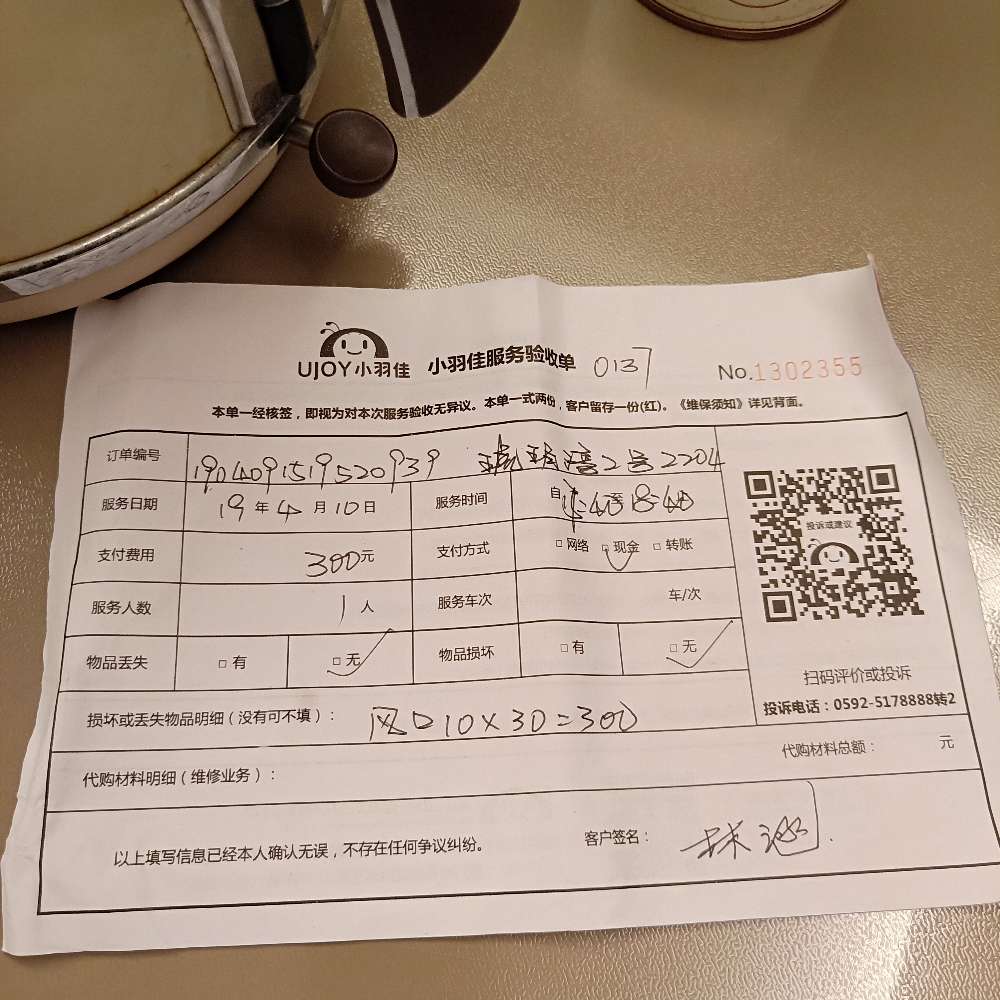 UJOY小羽佳 小羽佳服务验收单 0137 No.1302355
本单一经核签，即视为对本次服务验收无异议。本单一式两份，客户留存一份(红)。《维保须知》详见背面。
订单编号 1904091519520939 2号2204
服务日期 19年4月10日 服务时间 自 至18:40
支付费用 300元 支付方式 □网络 □现金 □转账
服务人数 1人 服务车次 车/次
物品丢失 □有 □无 物品损坏 □有 □无
投诉或建议
扫码评价或投诉
投诉电话：0592-5178888转2
损坏或丢失物品明细（没有可不填）： 风口10×30=300
代购材料明细（维修业务）： 代购材料总额： 元
以上填写信息已经本人确认无误，不存在任何争议纠纷。 客户签名：